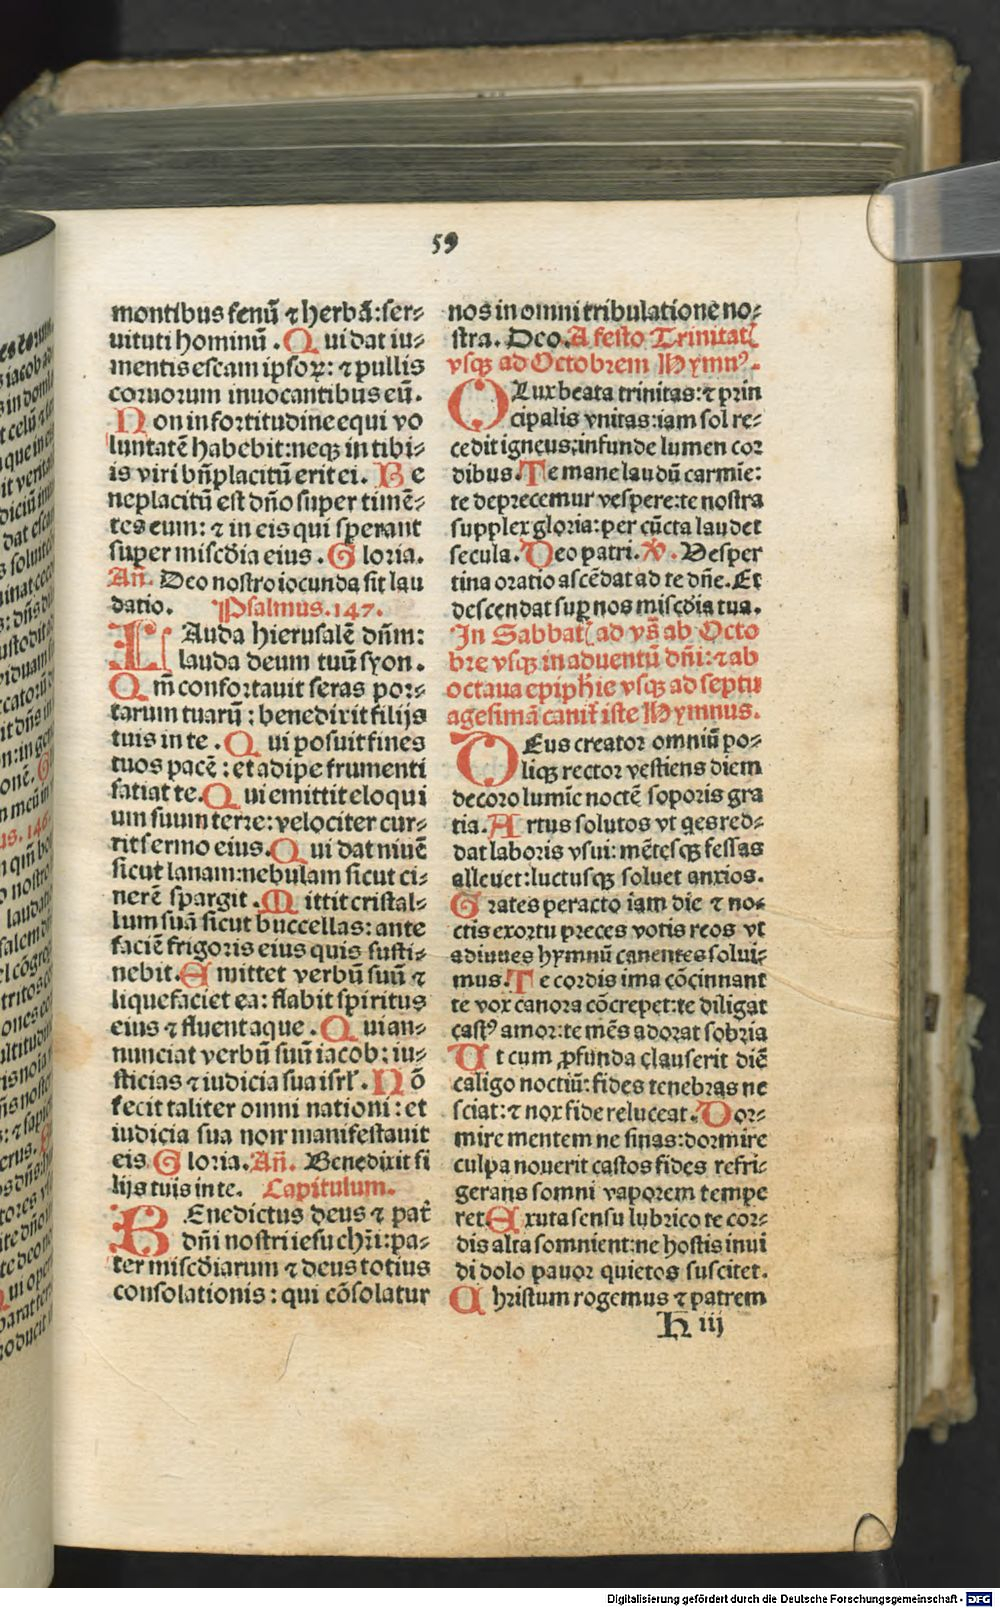 59
montibus fenū ⁊ herbā: ser⸗
uituti hominū . Qui dat iu⸗
mentis escam ipsoꝝ: ⁊ pullis
coruorum inuocantibus eū.
Non in fortitudine equi vo
luntatē habebit: neqꝫ in tibi⸗
is viri bn̄placitū erit ei. Be
neplacitū est dn̄o super timē⸗
tes eum: ⁊ in eis qui sperant
super misc̄dia eius . Gloria.
Añ. Deo nostro iocunda sit lau
datio. Psalmus. 147.
LAuda hierusalē dn̄m:
lauda deum tuū syon.
Qm̄ confortauit seras por⸗
tarum tuaꝝ: benedixit filijs
tuis in te . Qui posuit fines
tuos pacē: et adipe frumenti
satiat te. Qui emittit eloqui
um suum terre: velociter cur⸗
rit sermo eius. Qui dat niuē
sicut lanam: nebulam sicut ci⸗
nerē spargit . Mittit cristal⸗
lum suā sicut buccellas: ante
faciē frigoris eius quis susti⸗
nebit. Emittet verbū suū ⁊
liquefaciet ea: flabit spiritus
eius ⁊ fluent aque . Qui an⸗
nunciat verbū suū iacob: iu⸗
sticias ⁊ iudicia sua isrl̄. Nō
fecit taliter omni nationi: et
iudicia sua non manifestauit
eis Gloria. Añ. Benedixit fi
lijs tuis in te. Capitulum.
BEnedictus deus ⁊ pat̄
dn̄i nostri iesu chr̄i: pa⸗
ter misc̄diarum ⁊ deus totius
consolationis: qui cōsolatur
nos in omni tribulatione no⸗
stra. Deo. A festo Trinitatꝭ
vsqꝫ ad Octobrem Hymnꝰ.
O Lux beata trinitas: ⁊ prin
cipalis vnitas: iam sol re⸗
cedit igneus: infunde lumen cor
dibus. Te mane laudū carmīe:
te deprecemur vespere: te nostra
supplex gloria: per cūcta laudet
secula. Deo patri. ℣. Vesper
tina oratio ascēdat ad te dn̄e. Et
descendat suꝑ nos misc̄dia tua.
In Sabbatꝭ ad vs̄ ab Octo
bre vsqꝫ in aduentū dn̄i: ⁊ ab
octaua epiph̄ie vsqꝫ ad septu
agesimā canit̄ iste Hymnus.
DEus creator omniū po⸗
liqꝫ rector vestiens diem
decoro lumīe noctē soporis gra
tia. Artus solutos vt qes red⸗
dat laboris vsui: mētesqꝫ fessas
alleuet: luctusqꝫ soluet anxios.
Grates peracto iam die ⁊ no⸗
ctis exortu preces votis reos vt
adiuues hymnū canentes solui⸗
mus. Te cordis ima cōcinnant
te vox canora cōcrepet: te diligat
castꝰ amor: te mēs adorat sobria
Ut cum ꝓfunda clauserit diē
caligo noctiū: fides tenebras ne
sciat: ⁊ nox fide reluceat. Dor⸗
mire mentem ne sinas: dormire
culpa nouerit castos fides refri⸗
gerans somni vaporem tempe
ret Exuta sensu lubrico te cor⸗
dis alta somnient: ne hostis inui
di dolo pauor quietos suscitet.
Christum rogemus ⁊ patrem
H iij
Digitalisierung gefördert durch die Deutsche Forschungsgemeinschaft - DFG